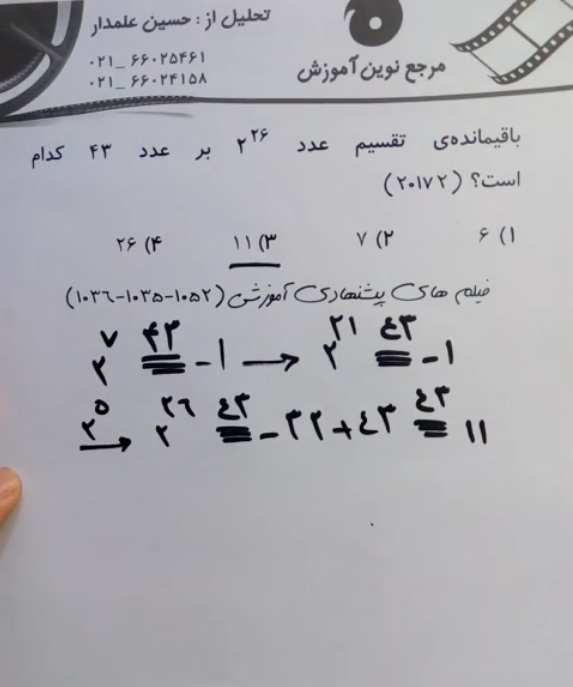 تحلیل از : حسین علمدار
۰۲۱_ ۶۶۰۲۵۴۶۱
۰۲۱_ ۶۶۰۲۴۱۵۸
مرجع نوین آموزش
باقیمانده‌ی تقسیم عدد ۲^۲۶ بر عدد ۴۳ کدام
است؟ (۲۰۱۷۲)
۱) ۶ ۲) ۷ ۳) ۱۱ ۴) ۲۶
فیلم های پیشنهادی آموزشی (۱۰۵۲-۱۰۳۵-۱۰۳۶)
۲^۷ ≡^۴۳ -۱ → ۲^۲۱ ≡^۴۳ -۱
→^۲^۵ ۲^۲۶ ≡^۴۳ -۳۲+۴۳ ≡^۴۳ ۱۱